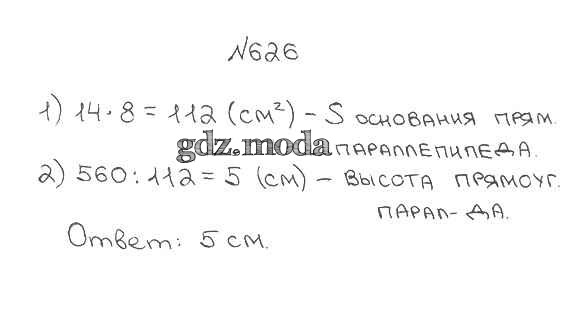 №626
1) 14·8=112 (см²) – S основания прям.
gdz.moda параллепипеда.
2) 560:112=5 (см) – высота прямоуг.
парал-да.
Ответ: 5 см.